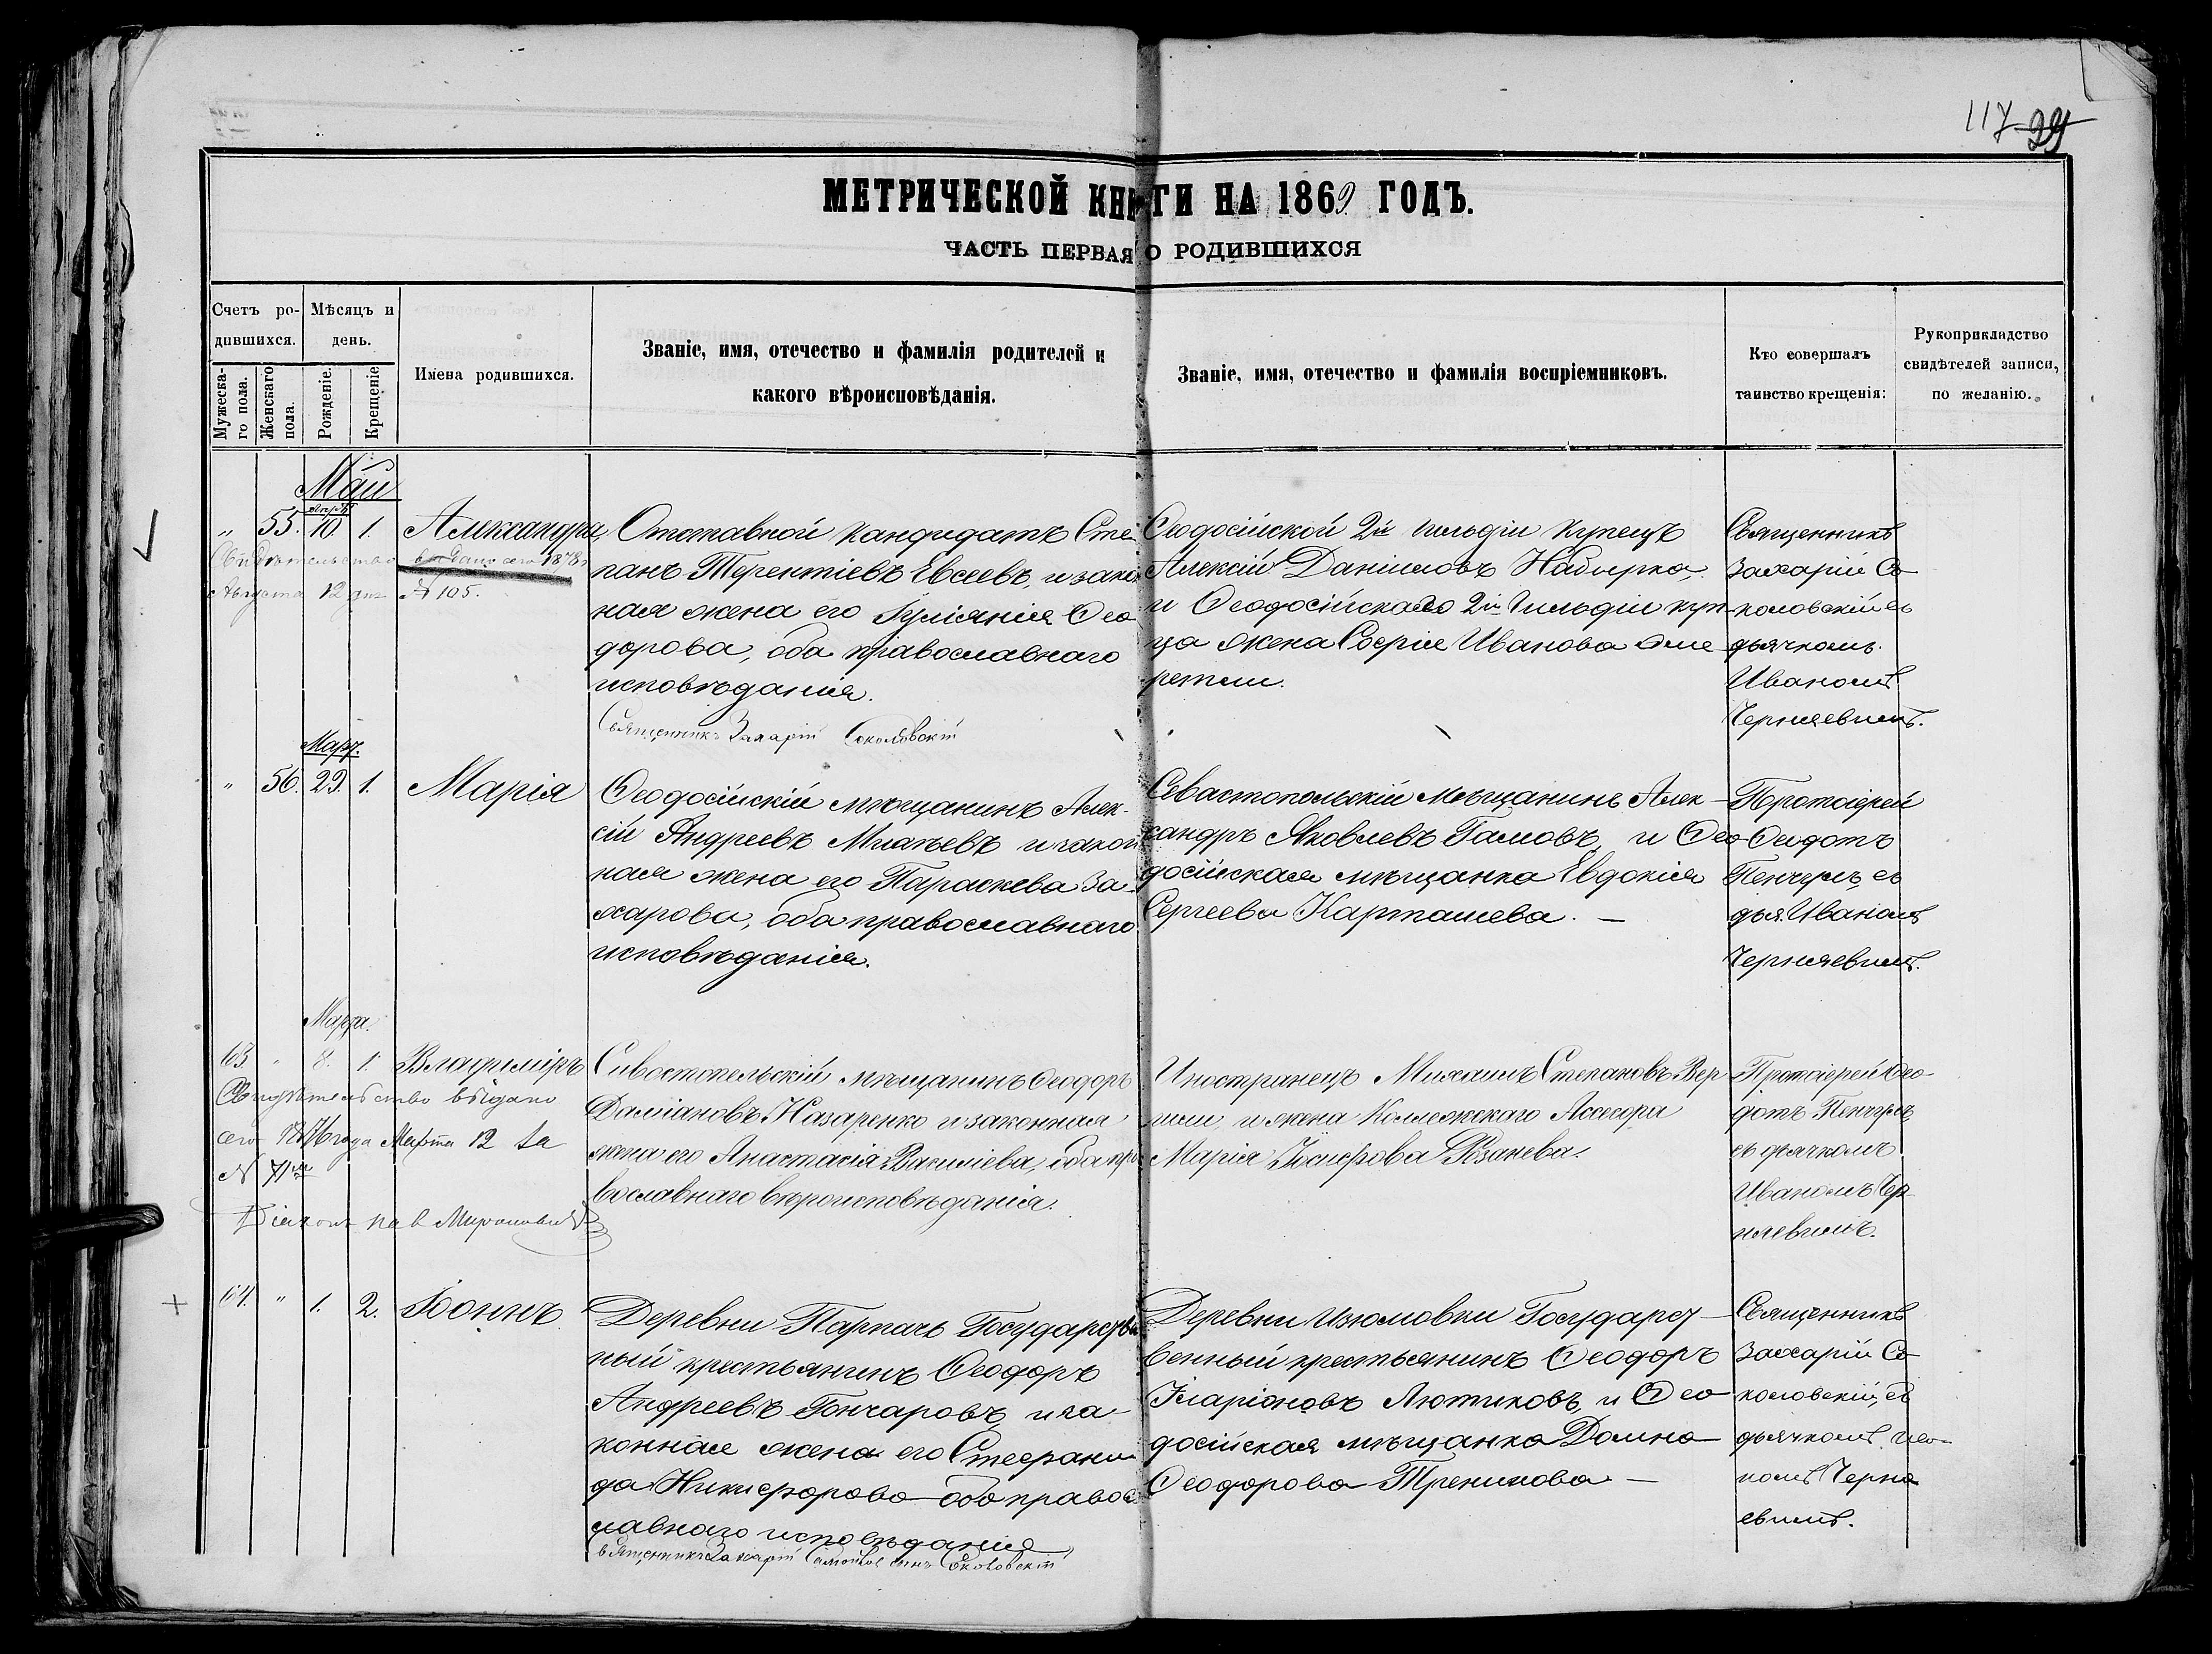 117 29
МЕТРИЧЕСКОЙ КНИГИ НА 1869 ГОДЪ.
ЧАСТЬ ПЕРВАЯ О РОДИВШИХСЯ
Счетъ ро-
дившихся.
Мѣсяцъ и
день.
Мужеска-
го пола.
Женскаго
пола.
Рожденіе.
Крещеніе
Имена родившихся.
Званіе, имя, отечество и фамилія родителей и
какого вѣроисповѣданія.
Званіе, имя, отечество и фамилія воспріемниковъ.
Кто совершалъ
таинство крещенія:
Рукоприкладство
свидѣтелей записи,
по желанію.
Май
" 55. 10. 1. Александра
Свидѣтельство выдано сего 1878
Августа 12 дня № 105.
Отставной кандидатъ Сте
панъ Терентіевъ Евсеевъ, и закон
ная жена его Іуліянія Ѳео
дорова, оба православнаго
исповѣданія.
Священникъ Захарій Соколовскій
Ѳеодосійской 2й гильдіи купецъ
Алексій Даніиловъ Набирка,
и Ѳеодосійскаго 2й Гильдіи куп
ца жена Софія Иванова
Священникъ
Захарій Со
коловскій съ
дьячкомъ
Иваномъ
Черняевымъ.
Март.
" 56. 29. 1. Марія
Ѳеодосійскій мѣщанинъ Алек-
сій Андреевъ и закон
ная жена его Параскева За-
харова, оба православнаго
исповѣданія.
Севастопольскій мѣщанинъ Алек-
сандръ Яковлевъ Гамовъ, и Ѳео
досійская мѣщанка Евдокія
Сергеева Карташева. —
Протоіерей
Ѳеодотъ
Пенчулъ, съ
дья. Иваномъ
Черняевымъ.
Марта.
63. " 8. 1. Владиміръ
Свидѣтельство выдано
сего 1876 года Марта 12 за
№ 71мъ
Севостопельскій мѣщанинъ Ѳеодоръ
Даміановъ Назаренко и законная
жена его Анастасія Василіева, оба пра
вославнаго вѣроисповѣданія.
Иностранецъ Михаилъ Степановъ Вер
и жена Коллежскаго Ассесора
Марія Іосифова
Протоіерей Ѳео-
дотъ Пенчулъ
съ дьячкомъ
Иваномъ Чер
няевымъ.
64. " 1. 2. Іоаннъ
Деревни Парпачъ Государствен
ный крестьянинъ Ѳеодоръ
Андреевъ Гончаровъ, и за-
конная жена его Стефани
да Никифорова оба правос
лавнаго исповѣданія
Священникъ Захарій Соколовскій
Деревни Изюмовки Государст-
венный крестьянинъ Ѳеодоръ
Иларіоновъ Лютиковъ, и Ѳео
досійская мѣщанка Домна
Ѳеодорова Треникова —
Священникъ
Захарій Со
коловскій, съ
дьячкомъ Ива-
номъ Черня
евымъ.